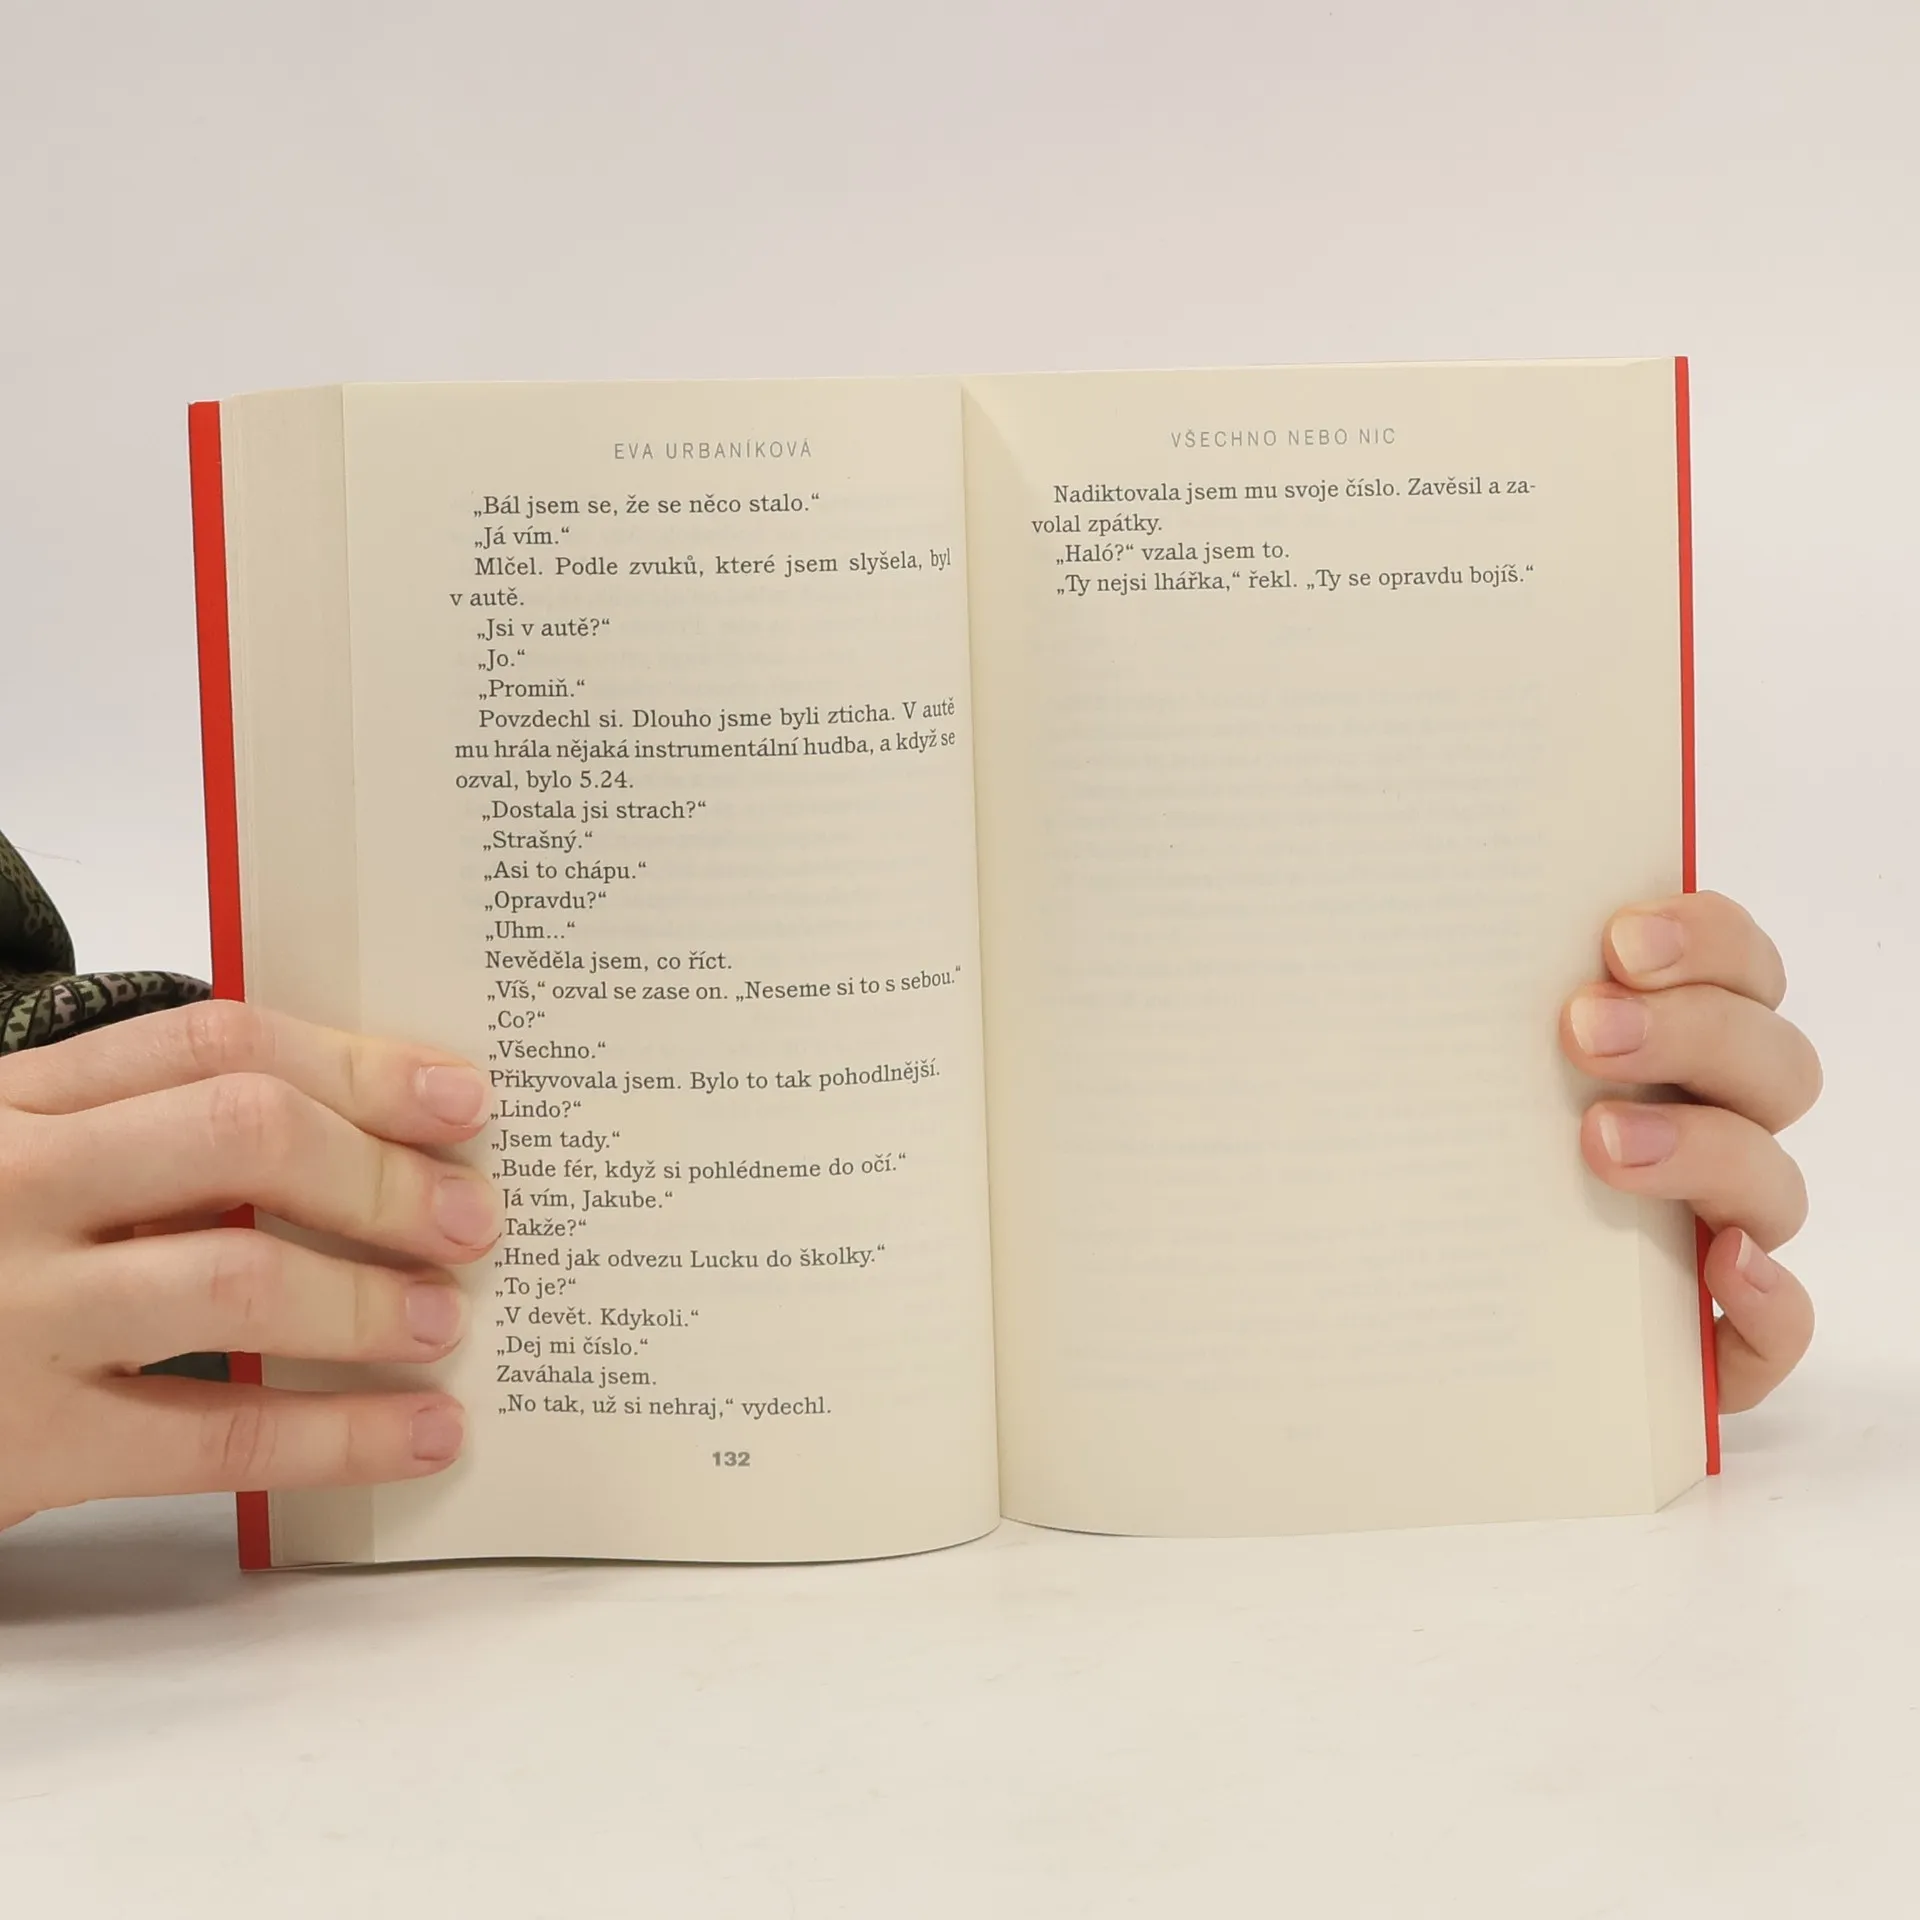 EVA URBANÍKOVÁ
„Bál jsem se, že se něco stalo.“
„Já vím.“
Mlčel. Podle zvuků, které jsem slyšela, byl
v autě.
„Jsi v autě?“
„Jo.“
„Promiň.“
Povzdechl si. Dlouho jsme byli zticha. V autě
mu hrála nějaká instrumentální hudba, a když se
ozval, bylo 5.24.
„Dostala jsi strach?“
„Strašný.“
„Asi to chápu.“
„Opravdu?“
„Uhm...“
Nevěděla jsem, co říct.
„Víš,“ ozval se zase on. „Neseme si to s sebou.“
„Co?“
„Všechno.“
Přikyvovala jsem. Bylo to tak pohodlnější.
„Lindo?“
„Jsem tady.“
„Bude fér, když si pohlédneme do očí.“
Já vím, Jakube.“
„Takže?“
„Hned jak odvezu Lucku do školky.“
„To je?“
„V devět. Kdykoli.“
„Dej mi číslo.“
Zaváhala jsem.
„No tak, už si nehraj,“ vydechl.
132
VŠECHNO NEBO NIC
Nadiktovala jsem mu svoje číslo. Zavěsil a za-
volal zpátky.
„Haló?“ vzala jsem to.
„Ty nejsi lhářka,“ řekl. „Ty se opravdu bojíš.“